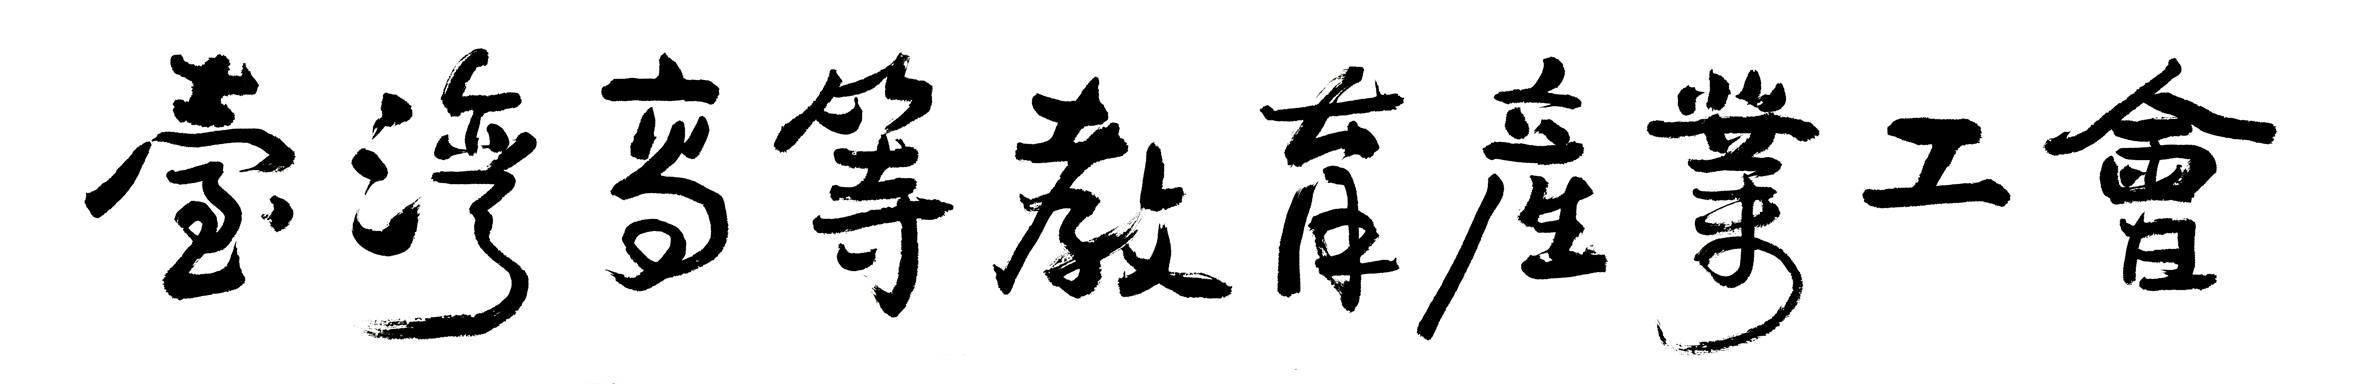 臺灣高等教育產業工會